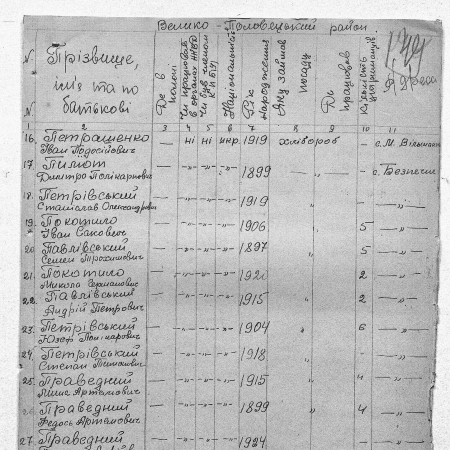 Велико-Половецький район
N N Прізвище, ім'я та по батькові | Де в полоні | Чи працював в органах НКВС Чи був членом КП(б)У | Національність | Рік народження | Яку займав посаду | Де працював | Кількість утриманців
2 3 4 5 6 7 8 9 10 11
16. Петрашенко Іван Тодосійович — ні ні укр. 1919 хлібороб — — с. М. Вільшанка
17. Пилют Дмитро Полікарпович — -"- -"- -"- 1899 — " — — — с. Безпечне
18. Петрівський Станіслав Олександрович — -"- -"- -"- 1919 " — — — " —
19. Покотило Іван Савович — -"- -"- -"- 1906 " 5 — " —
20. Павлівський Семен Трохимович — -"- -"- -"- 1897 " 5 — " —
21. Покотило Микола Германович — -"- -"- -"- 1920 " 2 — " —
22. Павлівський Андрій Петрович — -"- -"- -"- 1915 " 2 — " —
23. Петрівський Юзеф Полікарпович — -"- -"- -"- 1904 " 6 — " —
24. Петрівський Степан Тимкович — -"- -"- -"- 1918 " — — " —
25. Праведний Лише Артемович — -"- -"- -"- 1915 " 4 — " —
26. Праведний Федось Артемович — -"- -"- -"- 1899 " 4 — " —
27. Праведний — -"- -"- -"- 1924 " — — " —